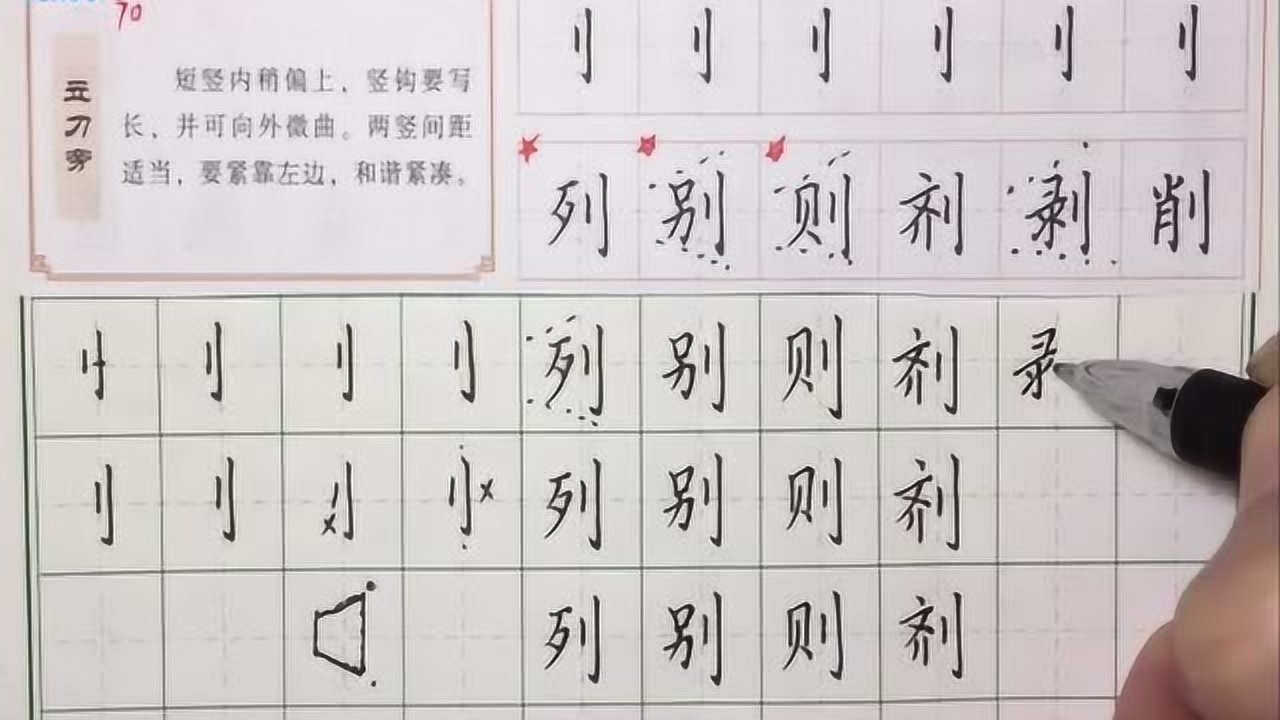 70
立刀旁
短竖内稍偏上，竖钩要写
长，并可向外微曲。两竖间距
适当，要紧靠左边，和谐紧凑。
刂 刂 刂 刂 刂 刂
列 别 则 剂 剥 削
刂 刂 刂 刂 列 别 则 剂 录
刂 刂 刂 刂 列 别 则 剂
列 别 则 剂